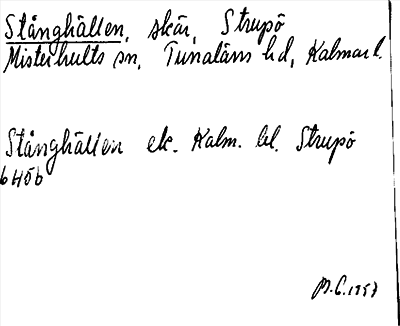 Stånghällen, skär, Strupö
Misterhults sn, Tunaläns hd, Kalmar l.
Stånghällen ek. Kalm. bl. Strupö
6H5b